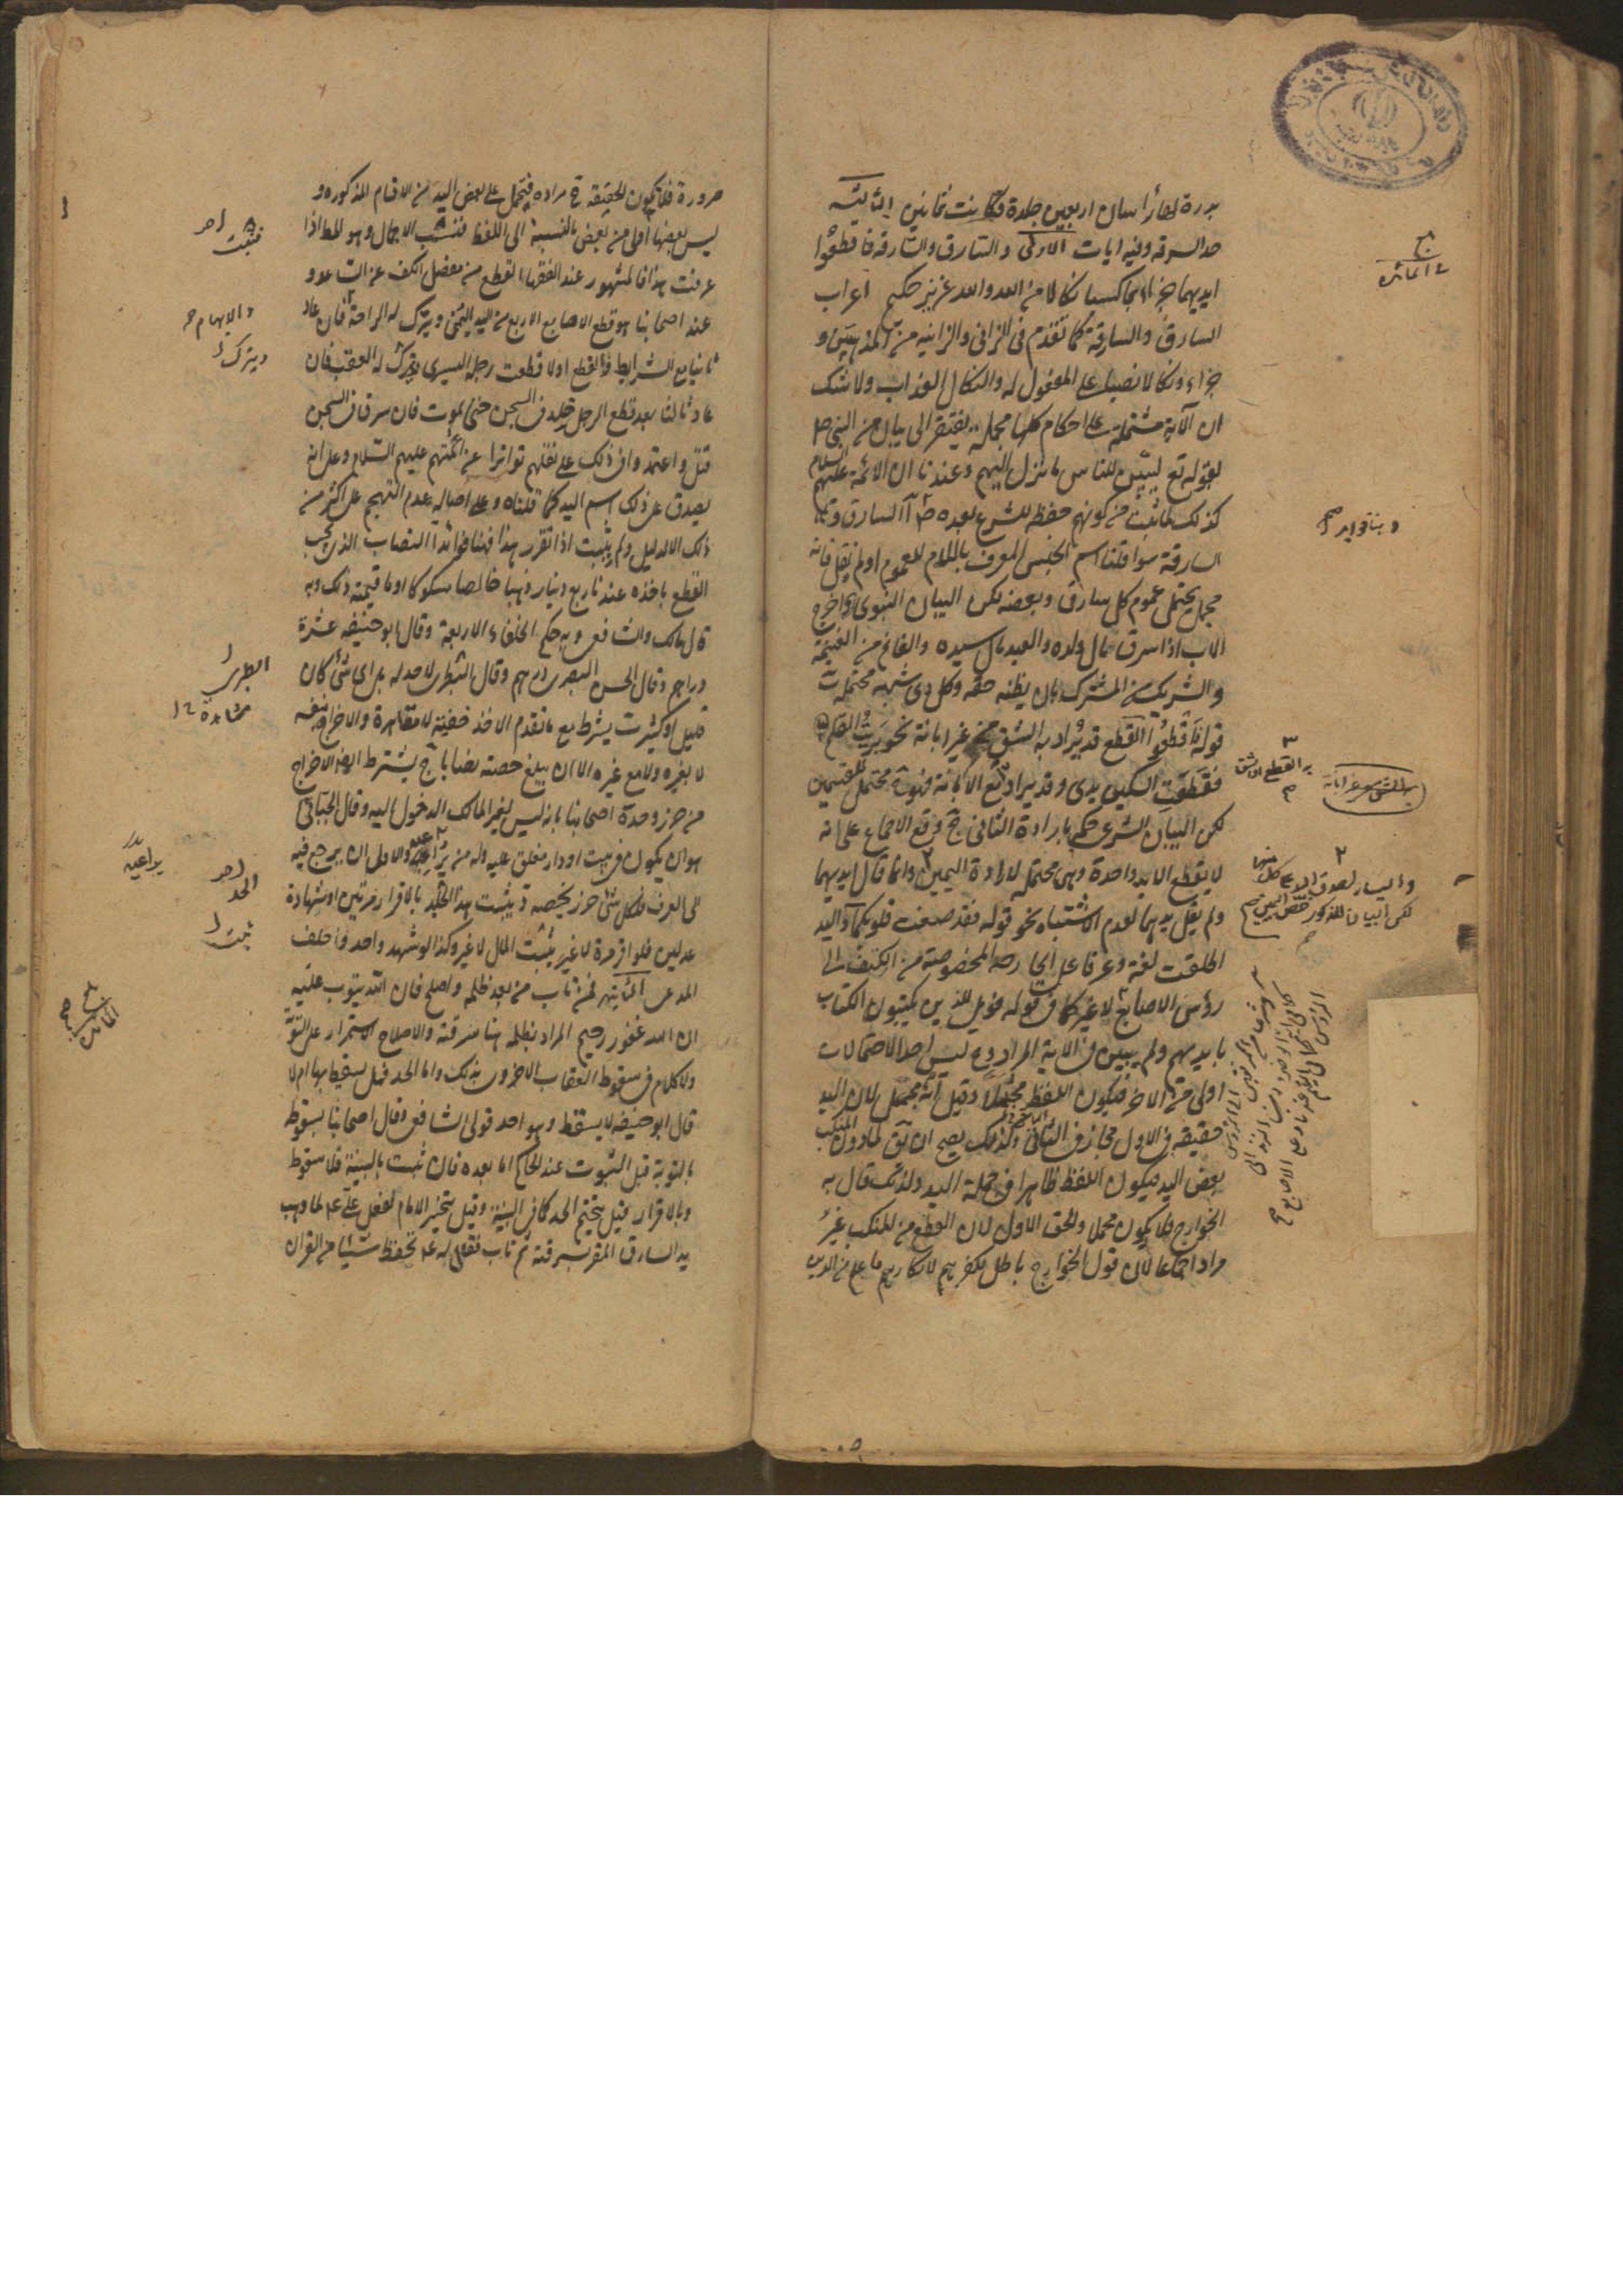 بدرة لها رأسان اربعين جلدة فكانت ثمانين الثانية
حد السرقة وفيه ايات الاولى والسارق والسارقة فاقطعوا
ايديهما جزاء بما كسبا نكالا من الله والله عزيز حكيم اعراب
السارق والسارقة كما تقدم فى الزانى والزانيه من المذهبين و
جزاء ونكالا نصبا على المفعول له والنكال العذاب ولا شك
ان الآية مشتملة على احكام كلها مجملة يفتقر الى بيان من النبى ص
لقوله تع ليبين للناس ما نزل اليهم وعندنا ان الائمة عليهم السلام
كذلك لما ثبت من كونهم حفظه للشرع بعده ص آ السارق و
السارقة سوا قلنا اسم الجنس المعرف باللام للعموم او لم نقل فانه
مجمل يحتمل عموم كل سارق وبعضه لكن البيان النبوى اخرج
الاب اذا سرق مال ولده والعبد مال سيده والغانم من الغنيمة
والشريك من المشترك ما يظنه حقه وكل ذى شبهه محتملة ب
قوله فاقطعوا القطع قد يراد به الشق من غير ابانة نحو بريت القلم
فقطعت السكين يدى وقد يراد مع الابانة فهو محتمل للقسمين
لكن البيان الشرعى حكم بارادة الثانى ج وقع الاجماع على انه
لا يقطع الا يد واحدة وهى محتملة لارادة اليمين وانما قال ايديهما
ولم يقل يديهما لعدم الاشتباه نحو قوله فقد صغت قلوبكما د اليد
اطلقت لغة وعرفا على الجارحه المخصوصة من الكتف الى
رؤس الاصابع لا غير كما فى قوله فويل للذين يكتبون الكتاب
بايديهم ولم يبين فى الاية المراد وح ليس احد الاحتمالات
اولى من الاخر فيكون اللفظ مجملا وقيل انه مجمل لان اليد
حقيقة فى الاول مجاز فى الثانى ولذلك يصح ان يق لما دون المنكب
بعض اليد فيكون اللفظ ظاهرا فى جملة اليد ولذلك قال به
الخوارج فلا يكون مجملا والحق الاول لان القطع من المنكب غير
مراد اجماعا لان قول الخوارج باطل لكفرهم لانكارهم ما علم من الدين
فى المائدة
وهنا فوايد
به القطع الشق
به الشق من غير ابانة
واليسار لصدق اليد على كل منهما
لكن البيان المذكور خص اليمين
ضرورة فلا يكون الحقيقة مراده فيحمل على بعض اليد من الاقسام المذكوره و
ليس بعضها اولى من بعض بالنسبة الى اللفظ فتثبت الاجمال وهو المط اذا
عرفت هذا فالمشهور عند الفقهاء القطع من مفصل الكف عن الساعد و
عند اصحابنا هو قطع الاصابع الاربع من اليد اليمنى ويترك له الراحة فان عاد
ثانيا مع الشرايط فالقطع اولا قطعت رجله اليسرى ويترك له العقب فان
عاد ثالثا بعد قطع الرجل خلد فى السجن حتى يموت فان سرق فى السجن
قتل واعتمدوا فى ذلك على نقلهم تواترا عن ائمتهم عليهم السلام وعلى انه
يصدق على ذلك اسم اليد كما قلناه وعلى اصالة عدم التهجم على اكثر من
ذلك الا لدليل ولم يثبت اذا تقرر هذا فهنا فوائد ا النصاب الذى يجب
القطع باخذه عندنا ربع دينار ذهبا خالصا مسكوكا او ما قيمته ذلك وبه
قال مالك والشافعى وبه حكم الخلفاء الاربعة وقال ابو حنيفه عشرة
دراهم وقال الحسن البصرى درهم وقال الطبرى لا حد له بل اى شىء كان
قليل او كثير ب يشرط مع ما تقدم الاخذ خفية لا مظاهرة والاخراج بنفسه
لا بغيره ولا مع غيره الا ان يبلغ حصته نصابا ج يشترط ايضا الاخراج
من حرز وحدة اصحابنا بانه ليس لغير المالك الدخول اليه وقال الجبائى
هو ان يكون فى بيت او دار مغلق عليه وله من يراعيه والاولى ان يرجع فيه
الى العرف فلكل شىء حرز يخصه د يثبت هذا الحد بالاقرار مرتين او شهادة
عدلين فلو اقر مرة لا غير يثبت المال لا غير وكذا لو شهد واحد واحلف
المدعى الثانية فمن تاب من بعد ظلمه واصلح فان الله يتوب عليه
ان الله غفور رحيم المراد بظلمه هنا سرقته والاصلاح الاستمرار على التوبة
ولا كلام فى سقوط العقاب الاخروى بذلك واما الحد فهل يسقط بها ام لا
قال ابو حنيفه لا يسقط وهو احد قولى الشافعى وقال اصحابنا بسقوطه
بالتوبة قبل الثبوت عند الحاكم اما بعده فان ثبت بالبينة فلا سقوط
وبالاقرار قيل يتحتم الحد كما فى البينة وقيل يتخير الامام لفعل على ع لما وهب
يد السارق المقر بسرقته ثم تاب فقال له ع تحفظ شيئا من القران
فتثبت
والابهام
ويترك
الطبرى
مشاهدة
يراعيه
الحد
ثبت